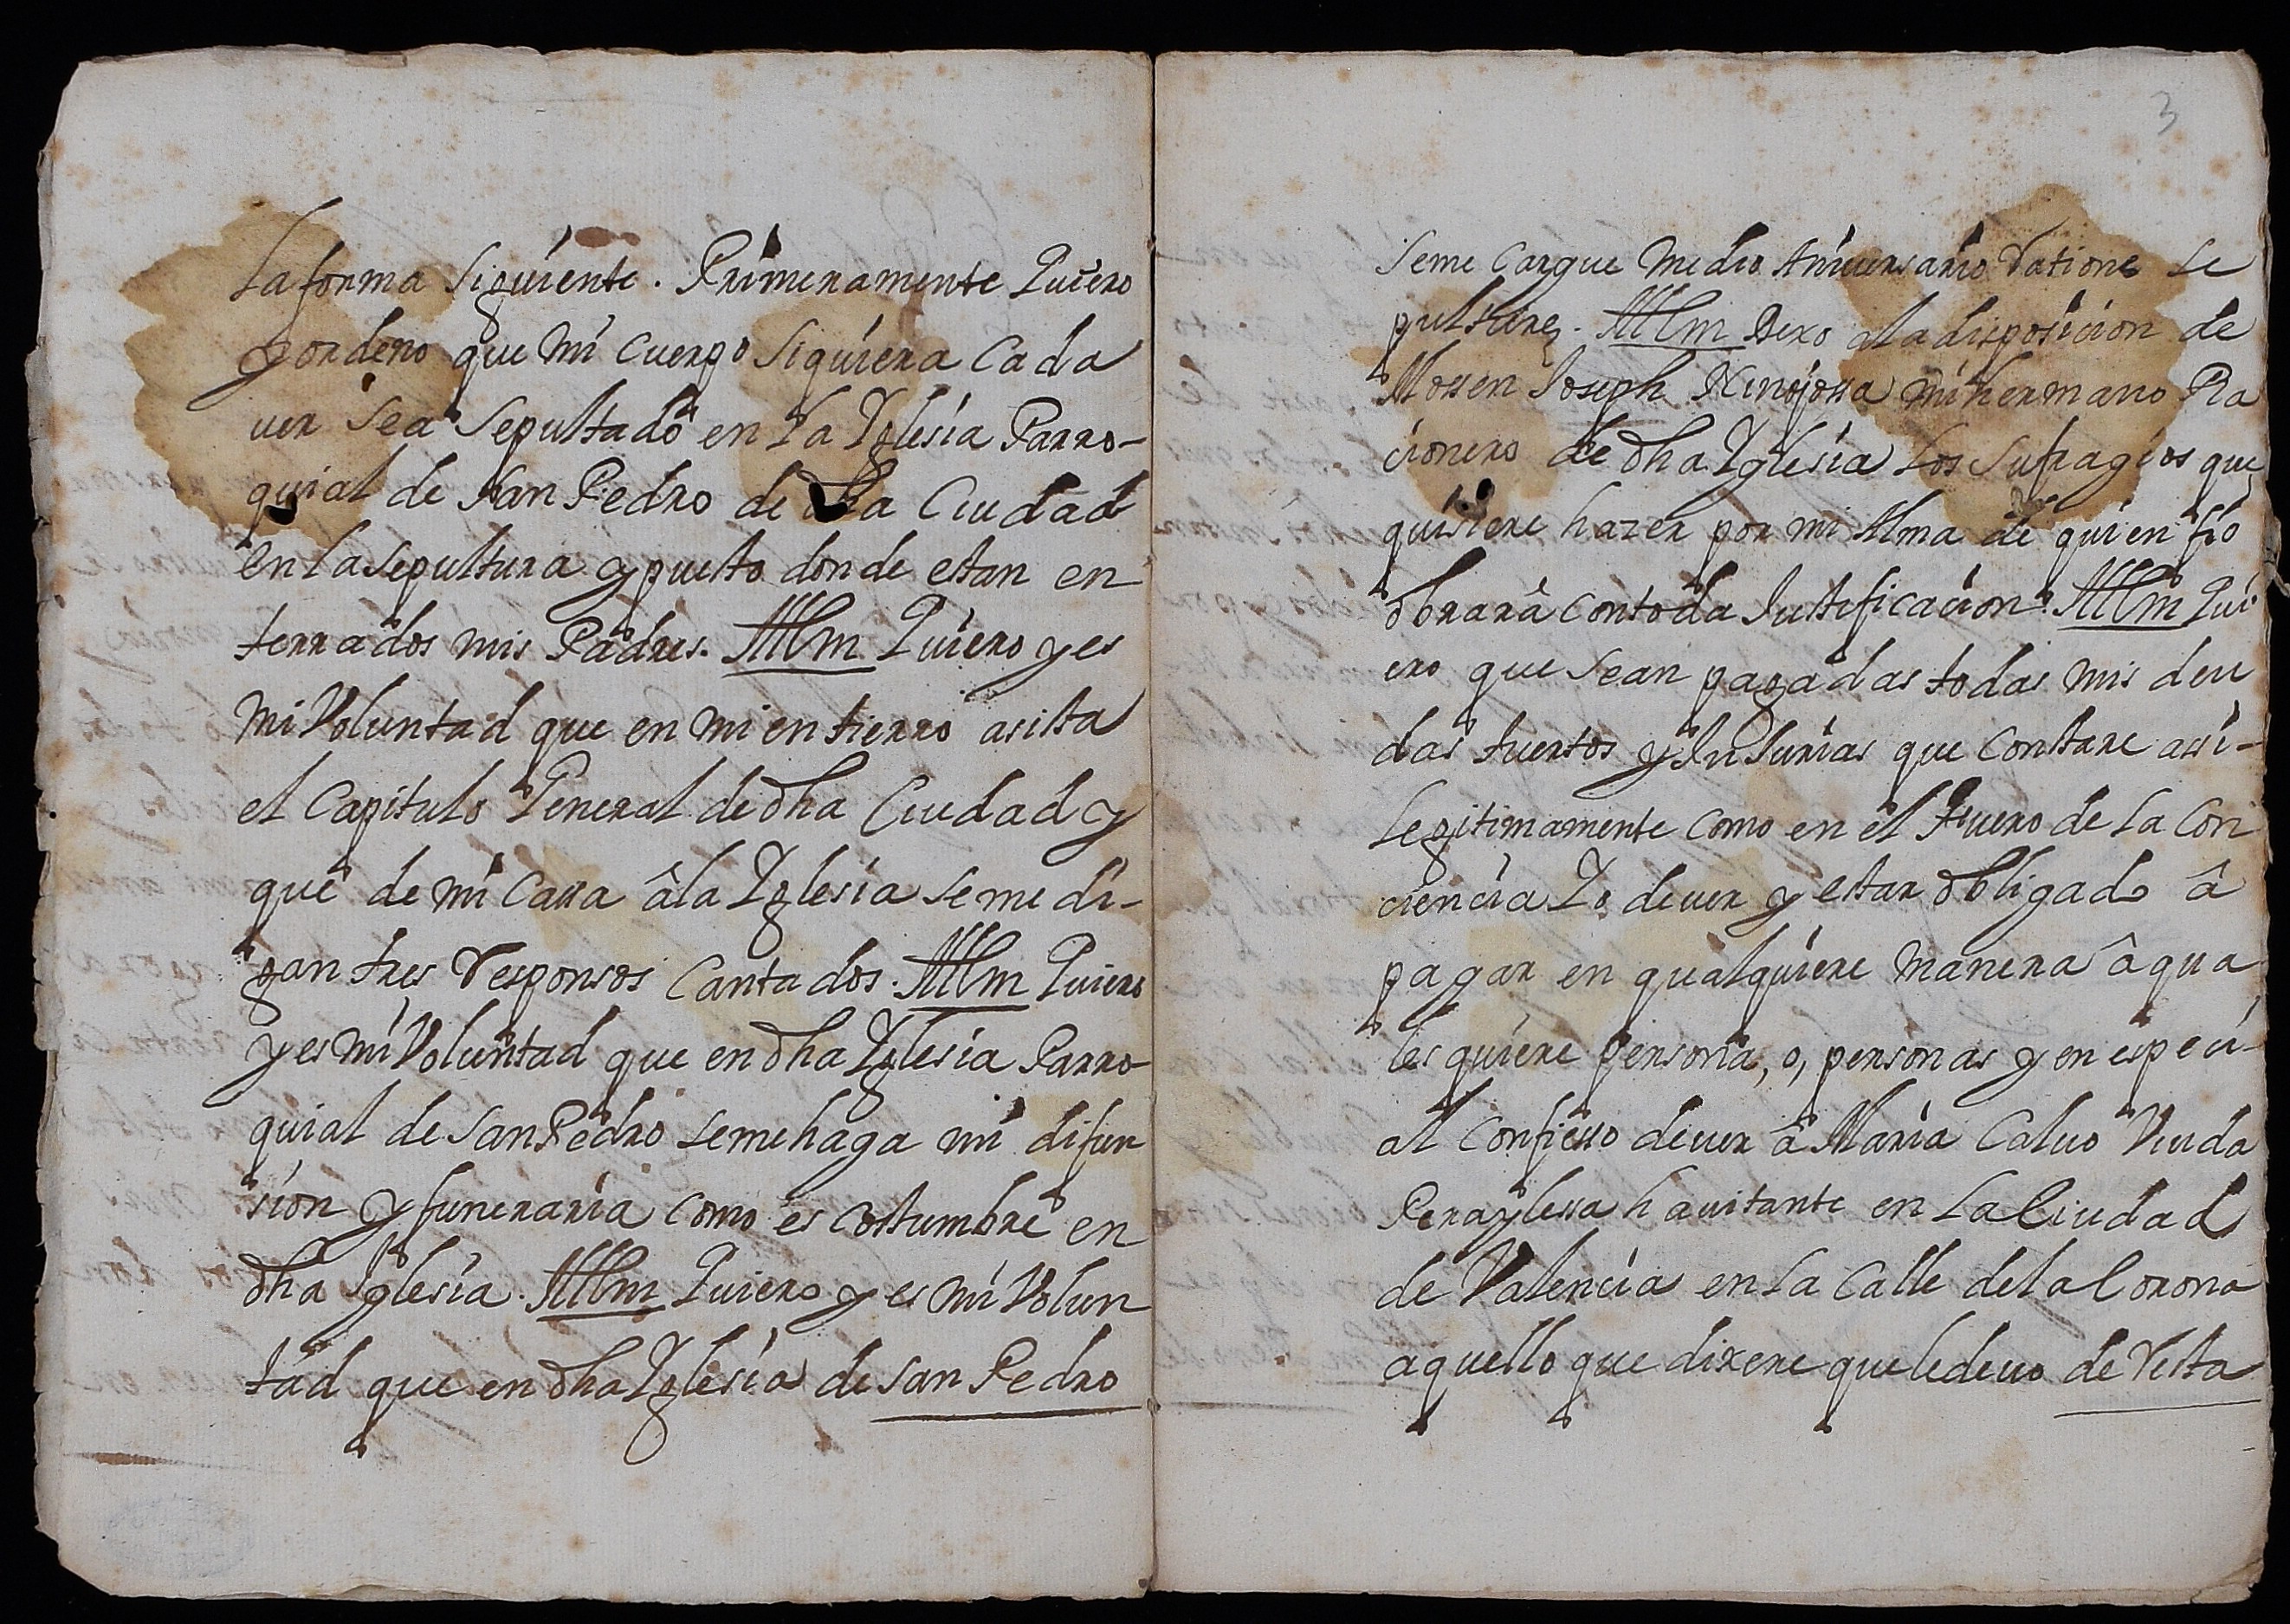 La forma siguiente. Primeramente Quiero
y ordeno que mi cuerpo siquiera Cada
uer sea sepultado en la Yglesia Parro-
quial de san Pedro de dha Ciudad
en la sepultura y puesto donde estan en
terrados mis Padres. Attem Quiero y es
mi Voluntad que en mi entierro asista
el Capitulo General de dha Ciudad y
que de mi Cassa â la Yglesia se me di-
gan tres responsos Cantados. Attem Quiero
y es mi Voluntad que en dha Yglesia Parro-
quial de san Pedro se me haga mi difun
sion y funeraria como es costumbre en
dha Yglesia. Attem Quiero y es mi Volun
tad que en dha Yglesia de san Pedro
3
se me Cargue medio Aniuersario ratione se
pulture. Attem Dexo a la disposicion de
Mossen Joseph Hinojossa mi hermano Ra
cionero de dha Yglesia los sufragios que
quisiere hazer por mi Alma de quien fio
obrarâ con toda Justificacion. Attem Qui
ero que sean pagadas todas mis deu
das tuertos y Injurias que constare assi-
legitimamente como en el fuero de la con
ciencia Yo deuer y estar obligado â
pagar en qualquiere manera â qua
lesquiere persona, o, personas y en especi-
al confiesso deuer â Maria Caluo Viuda
Peraylessa hauitante en la Ciudad
de Valencia en la Calle de la Corona
aquello que dixere que le deuo de resta